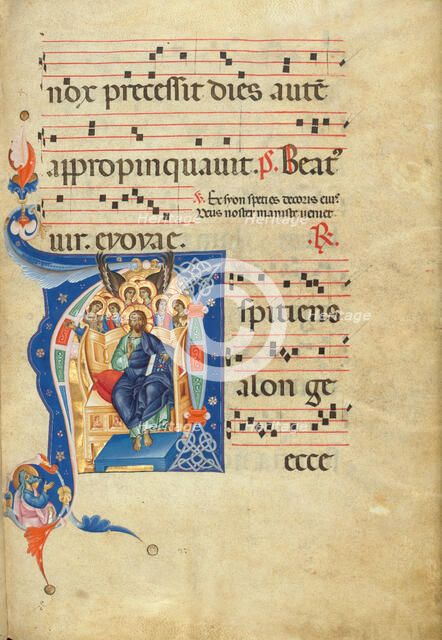 nox precessit dies autē
appropinquavit. P. Beat⁹
V. Ex syon species decoris eius
Deus noster manifeste veniet
vir. evovae. R.
A
spitiens
a longe
ecce